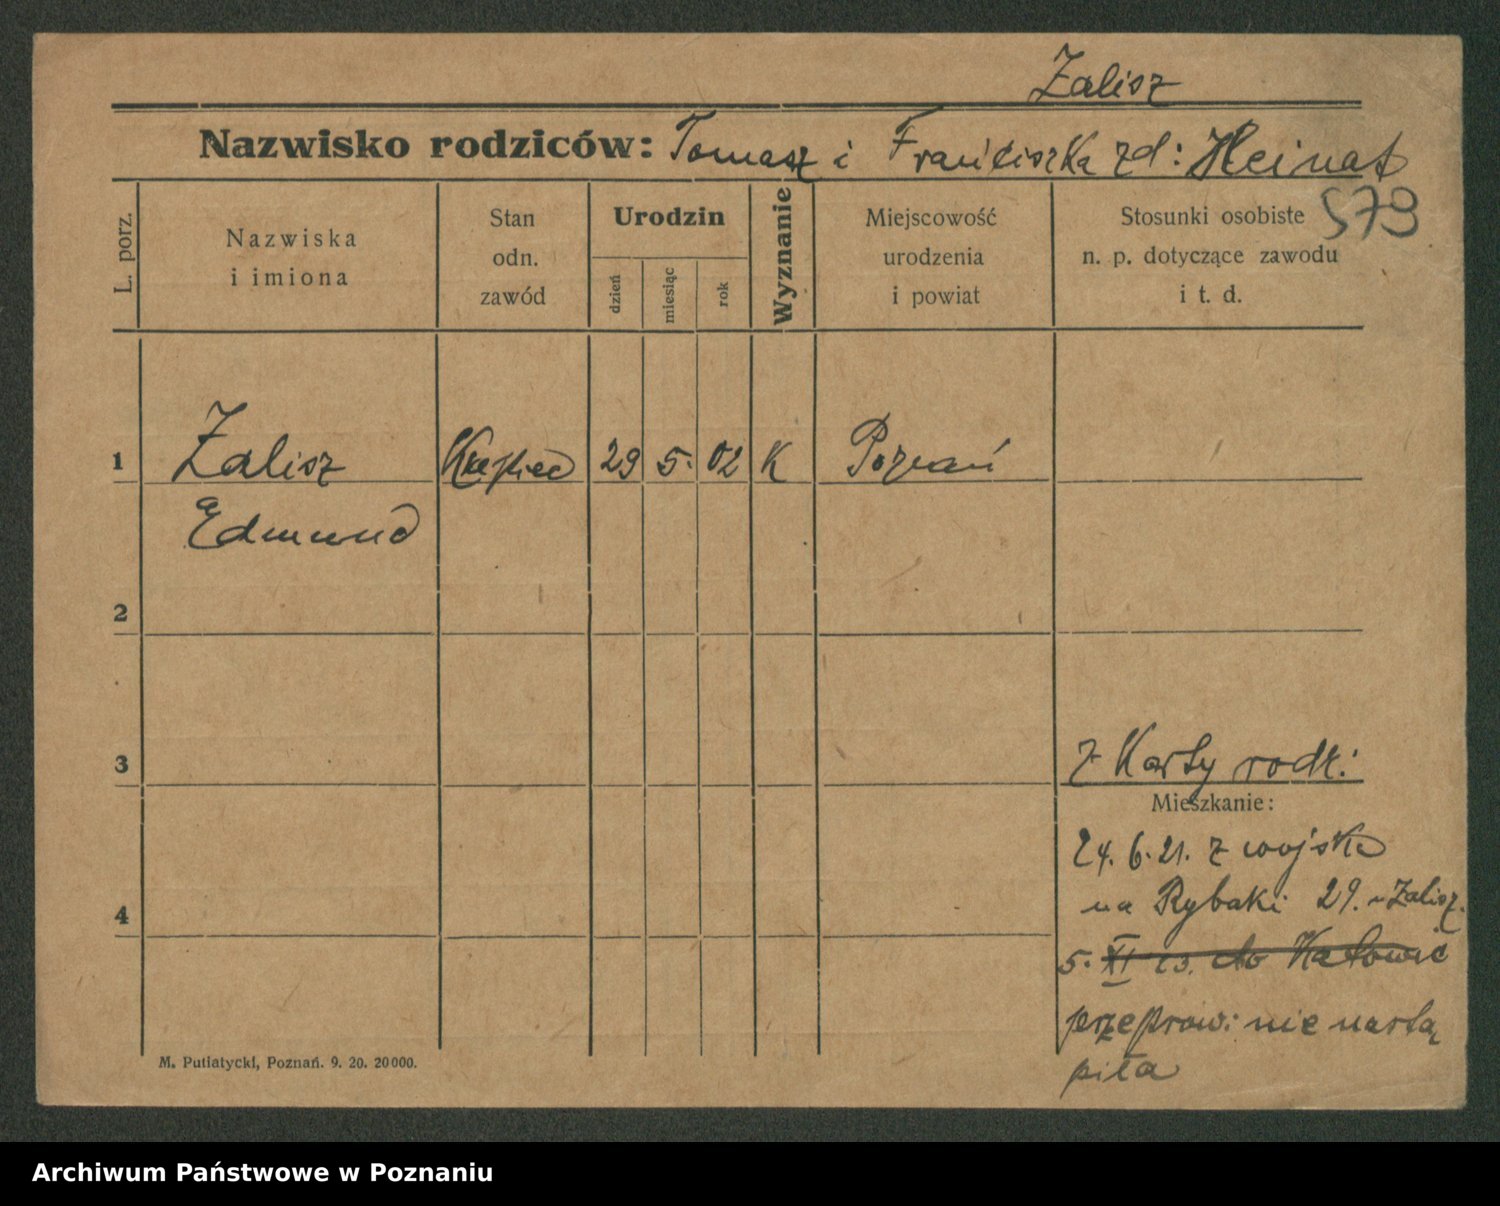 Zalisz
Nazwisko rodziców: Tomasz i Franciszka zd: Heinat
579
L. porz.
Nazwiska
i imiona
Stan
odn.
zawód
Urodzin
dzień
miesiąc
rok
Wyznanie
Miejscowość
urodzenia
i powiat
Stosunki osobiste
n. p. dotyczące zawodu
i t. d.
1 Zalisz 29 5. 02 K Poznań
Edmund
2
3
z Karty rodz:
Mieszkanie:
24. 6. 21. z wojska
na Rybaki 29. Zalisz.
4
5. XI 23. do Katowic
przeprow: nie nastą
piła
M. Putiatycki, Poznań. 9. 20. 20000.
Archiwum Państwowe w Poznaniu